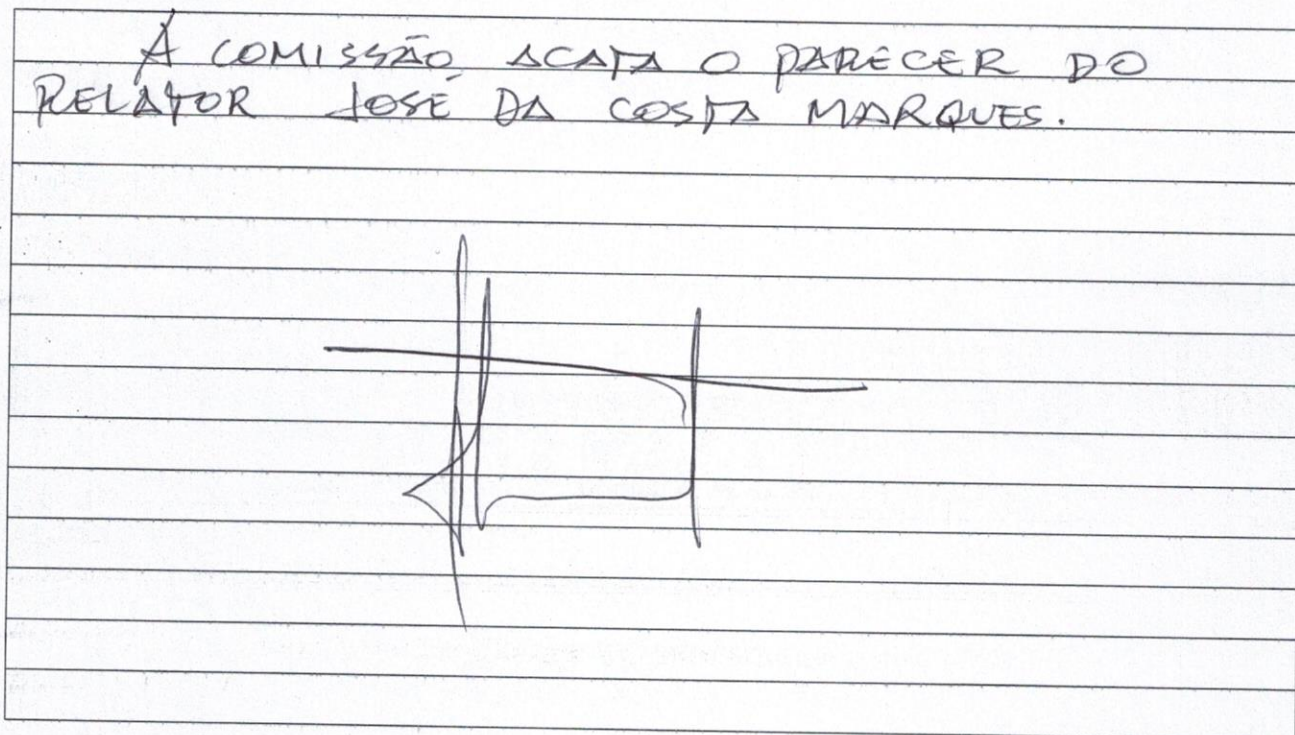 A COMISSÃO ACATA O PARECER DO
RELATOR JOSÉ DA COSTA MARQUES.